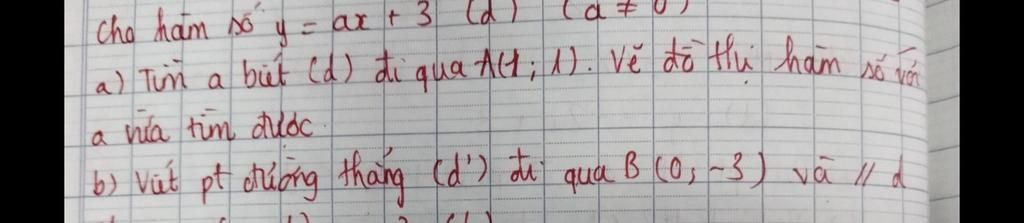 Cho hàm số y = ax + 3 (d) (a ≠ 0)
a) Tìm a biết (d) đi qua A(1; 1). Vẽ đồ thị hàm số với
a vừa tìm được.
b) Viết pt đường thẳng (d') đi qua B (0; -3) và // d